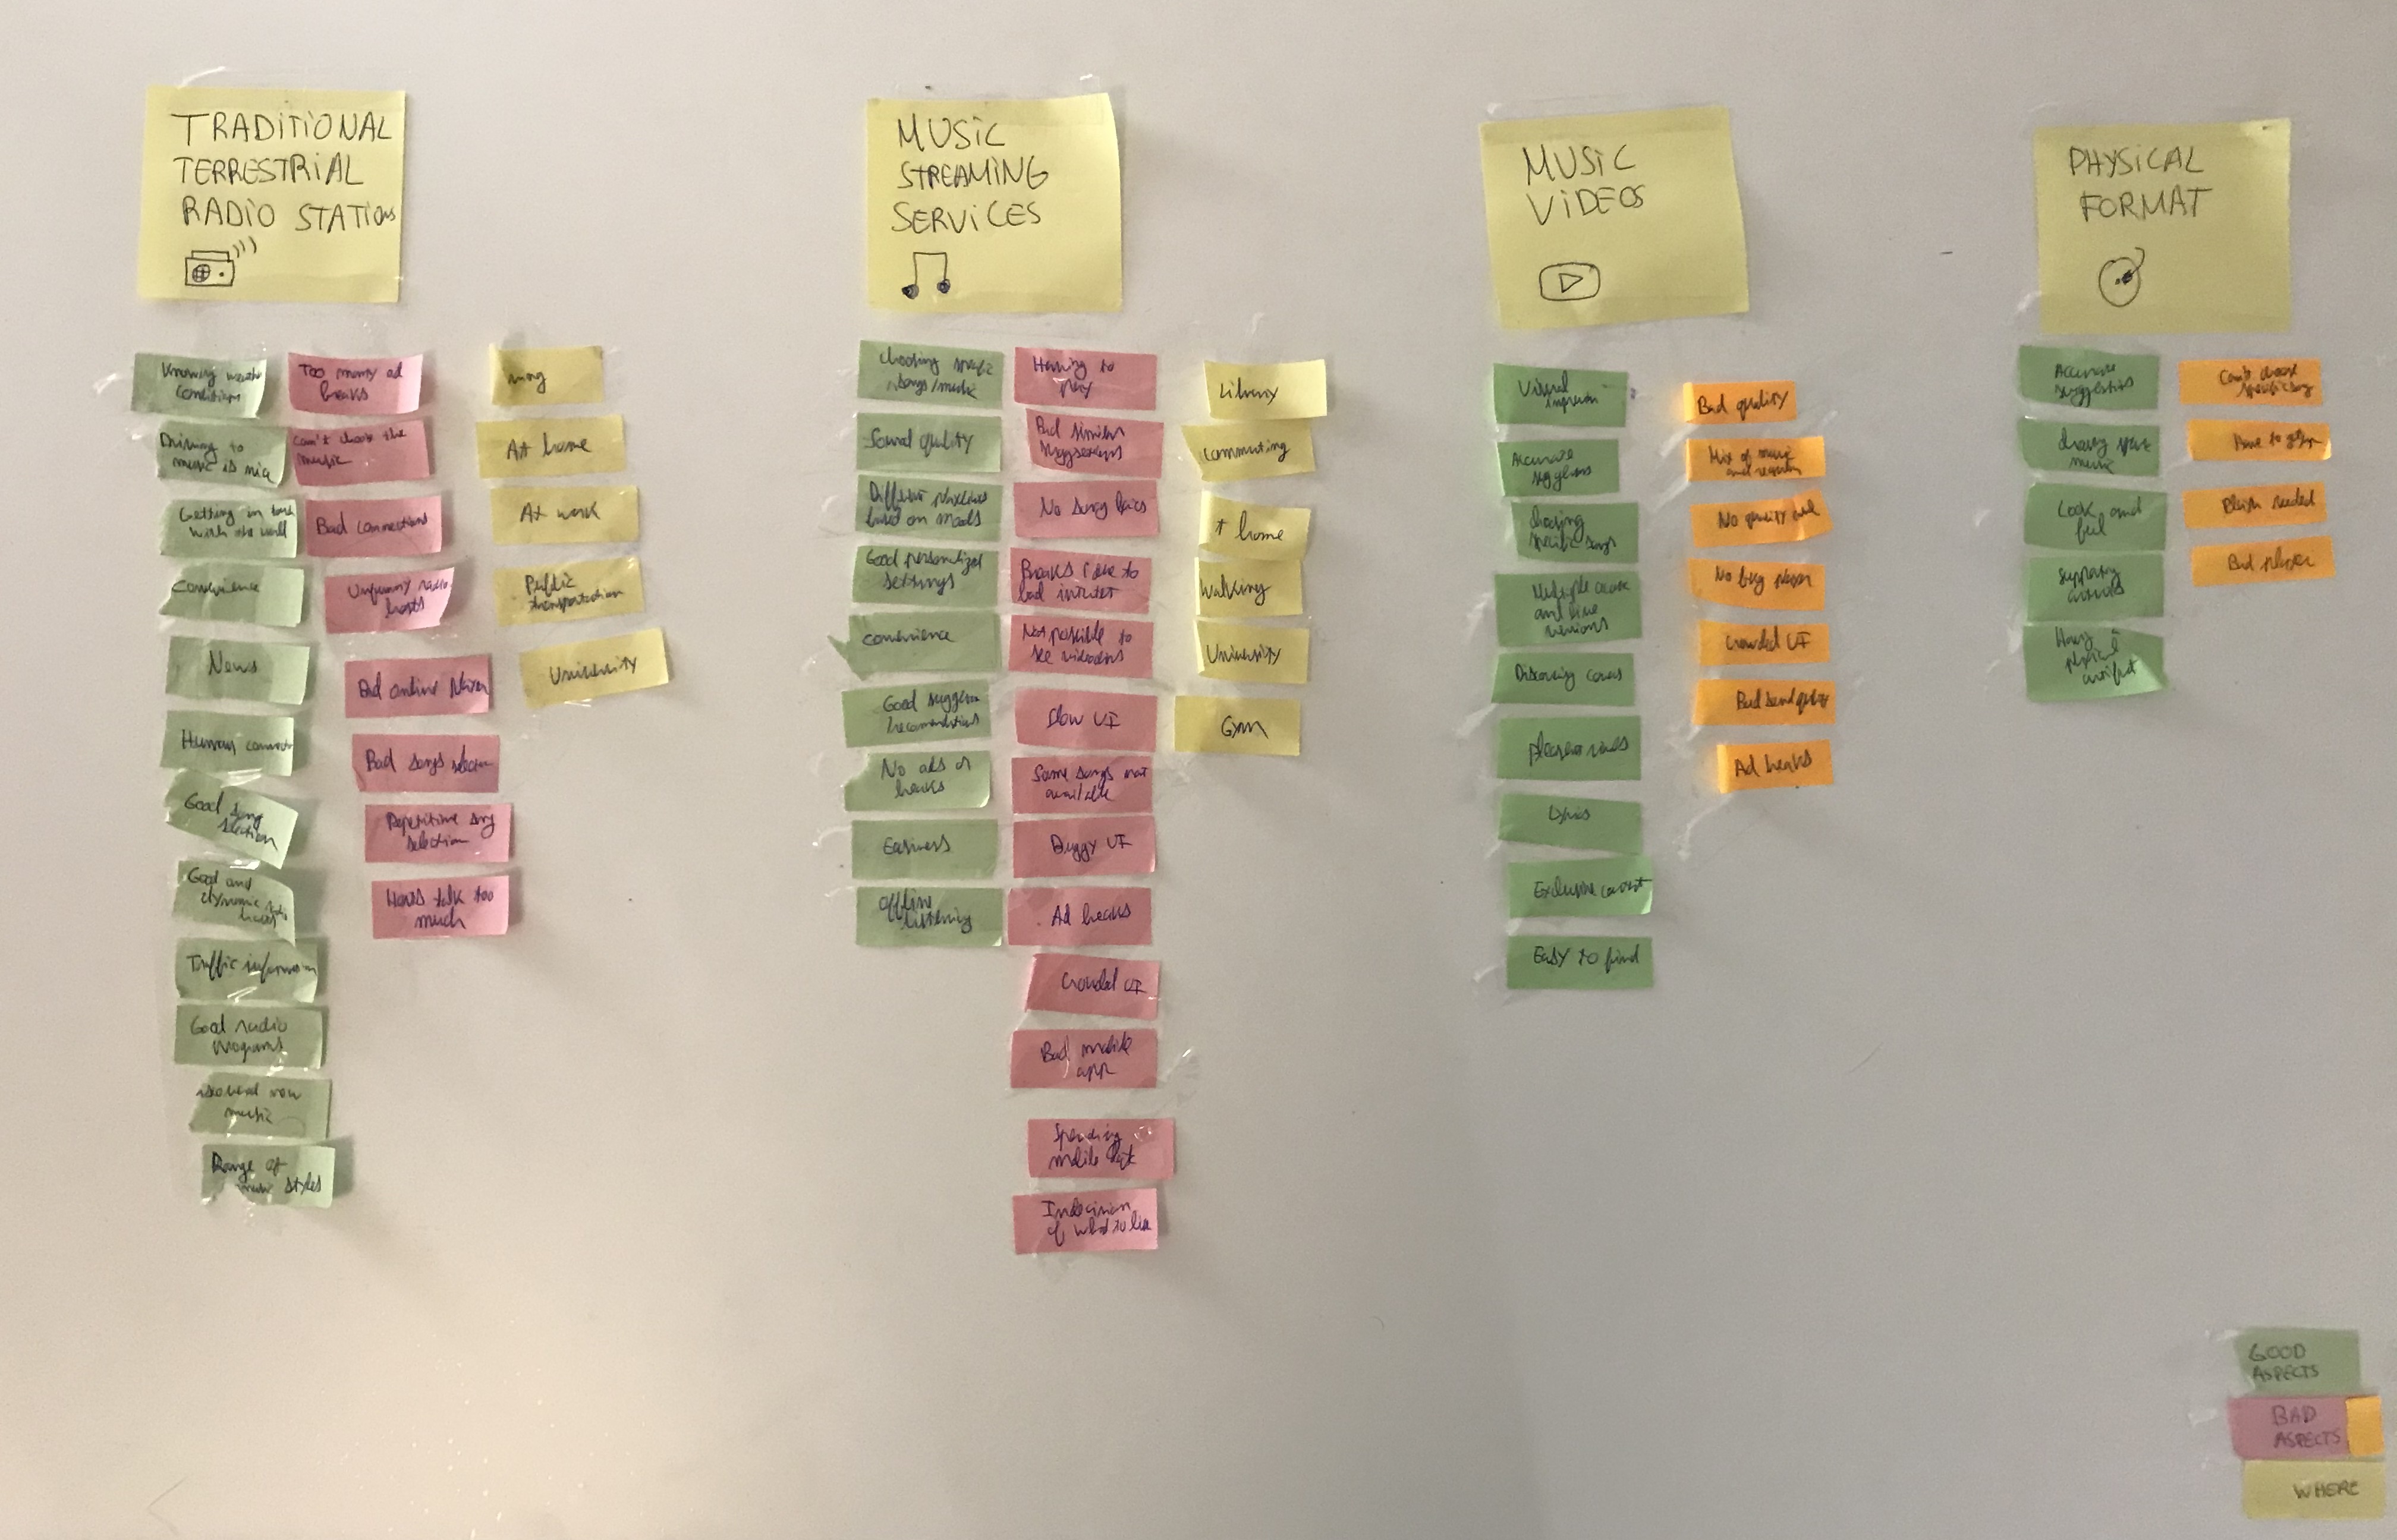 TRADITIONAL
TERRESTRIAL
RADIO STATIONS
Knowing weather
conditions
Driving to
music is nice
Getting in touch
with the world
Convenience
News
Human connection
Good song
selection
Good and
dynamic radio
hosts
Traffic information
Good radio
programs
new
music
Range of
music styles
Too many ad
breaks
Can't choose the
music
Bad connections
Unfunny radio
hosts
Bad online player
Bad songs selection
Repetitive song
selection
Hosts talk too
much
At home
At work
Public
transportation
University
MUSIC
STREAMING
SERVICES
Choosing specific
songs/music
Sound quality
Different playlists
based on moods
Good personalized
settings
Convenience
Good suggestions
recommendations
No ads or
breaks
Easiness
Offline
listening
Having to
pay
Bad similar
suggestions
No song lyrics
Breaks due to
bad internet
Not possible to
see videoclips
Slow UI
Some songs not
available
Buggy UI
Ad breaks
Crowded UI
Bad mobile
app
Spending
mobile data
Indecision
of what to
Library
Commuting
t home
Walking
University
Gym
MUSIC
VIDEOS
Visual
Accurate
suggestions
Choosing
specific songs
Multiple
and live
versions
Discovering covers
Lyrics
Exclusive content
Easy to find
Bad quality
Mix of music
and
No quality
No bug player
Crowded UI
Bad sound quality
Ad breaks
PHYSICAL
FORMAT
Accurate
suggestions
music
Look and
feel
Supporting
artists
Having a
physical
artifact
Can't choose
specific song
Have to
needed
Bad player
GOOD
ASPECTS
BAD
ASPECTS
WHERE